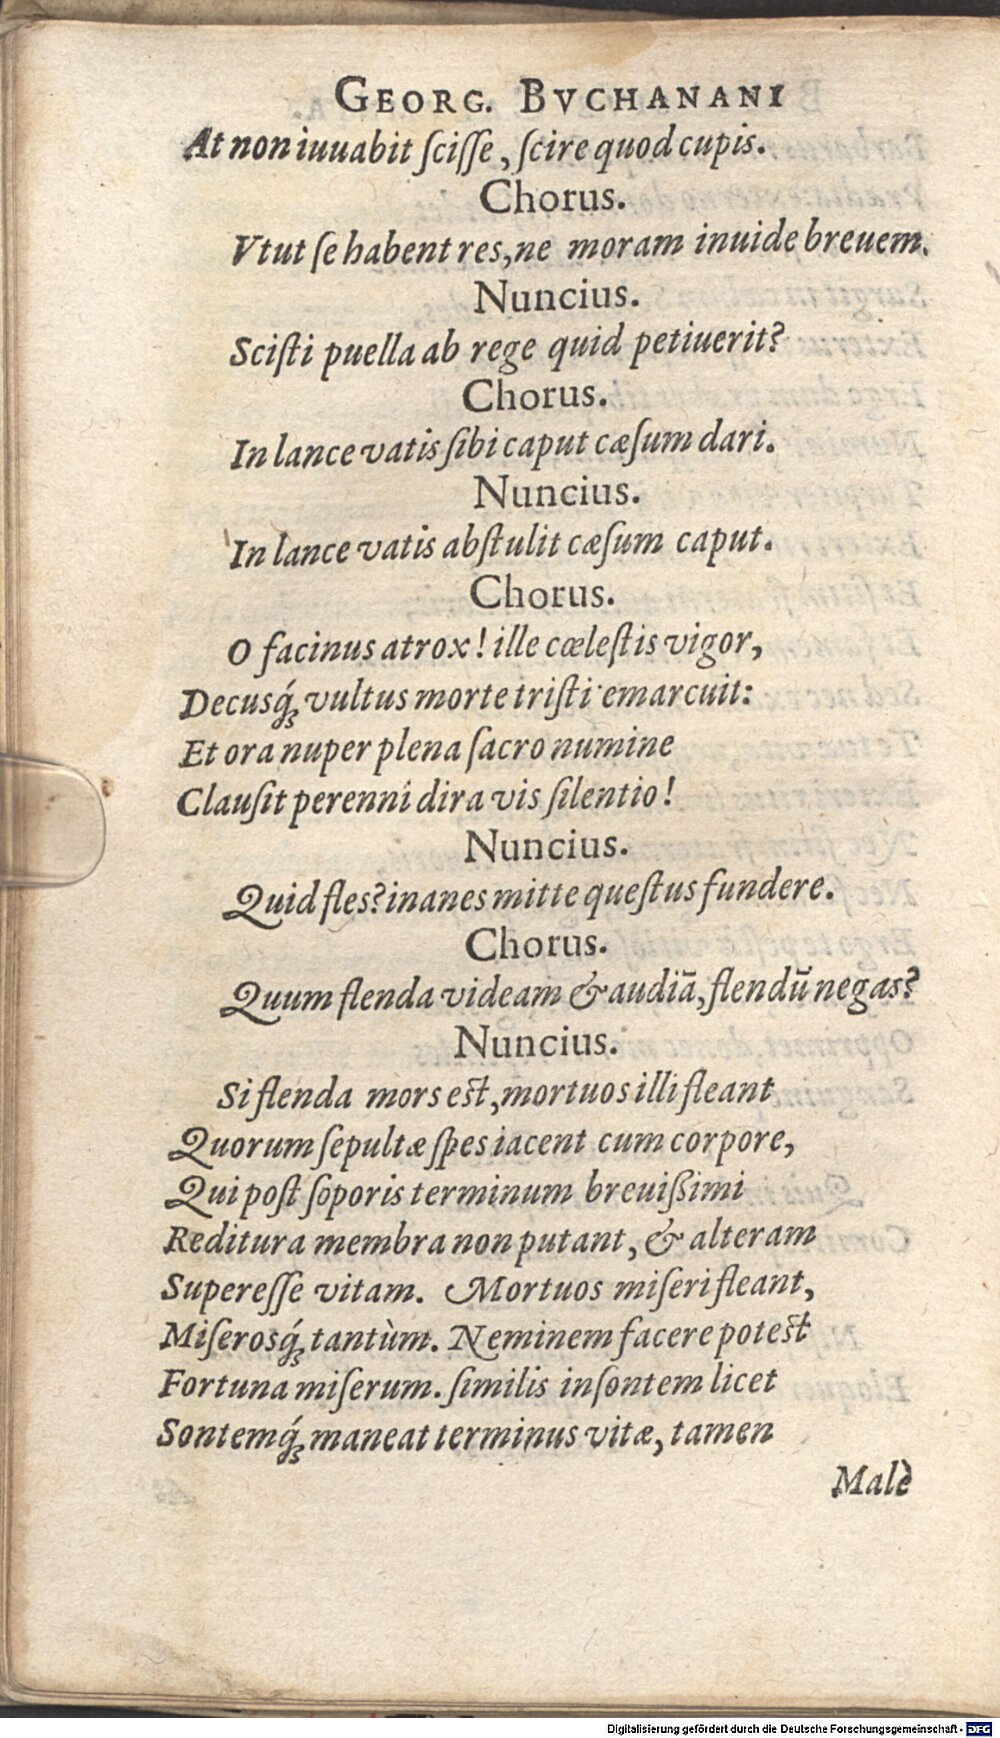 GEORG. BVCHANANI
At non iuuabit ſciſſe, ſcire quod cupis.
Chorus.
Vtut ſe habent res, ne moram inuide breuem.
Nuncius.
Sciſti puella ab rege quid petiuerit?
Chorus.
In lance vatis ſibi caput cæſum dari.
Nuncius.
In lance vatis abſtulit cæſum caput.
Chorus.
O facinus atrox! ille cœleſtis vigor,
Decusq́; vultus morte triſti emarcuit:
Et ora nuper plena ſacro numine
Clauſit perenni dira vis ſilentio!
Nuncius.
Quid fles? inanes mitte queſtus fundere.
Chorus.
Quum flenda videam & audiā, flendū negas?
Nuncius.
Si flenda mors est, mortuos illi fleant
Quorum ſepultæ ſpes iacent cum corpore,
Qui poſt ſoporis terminum breuißimi
Reditura membra non putant, & alteram
Supereſſe vitam. Mortuos miſeri fleant,
Miſerosq́; tantùm. Neminem facere potest
Fortuna miſerum. ſimilis inſontem licet
Sontemq́; maneat terminus vitæ, tamen
Malè
Digitalisierung gefördert durch die Deutsche Forschungsgemeinschaft - DFG